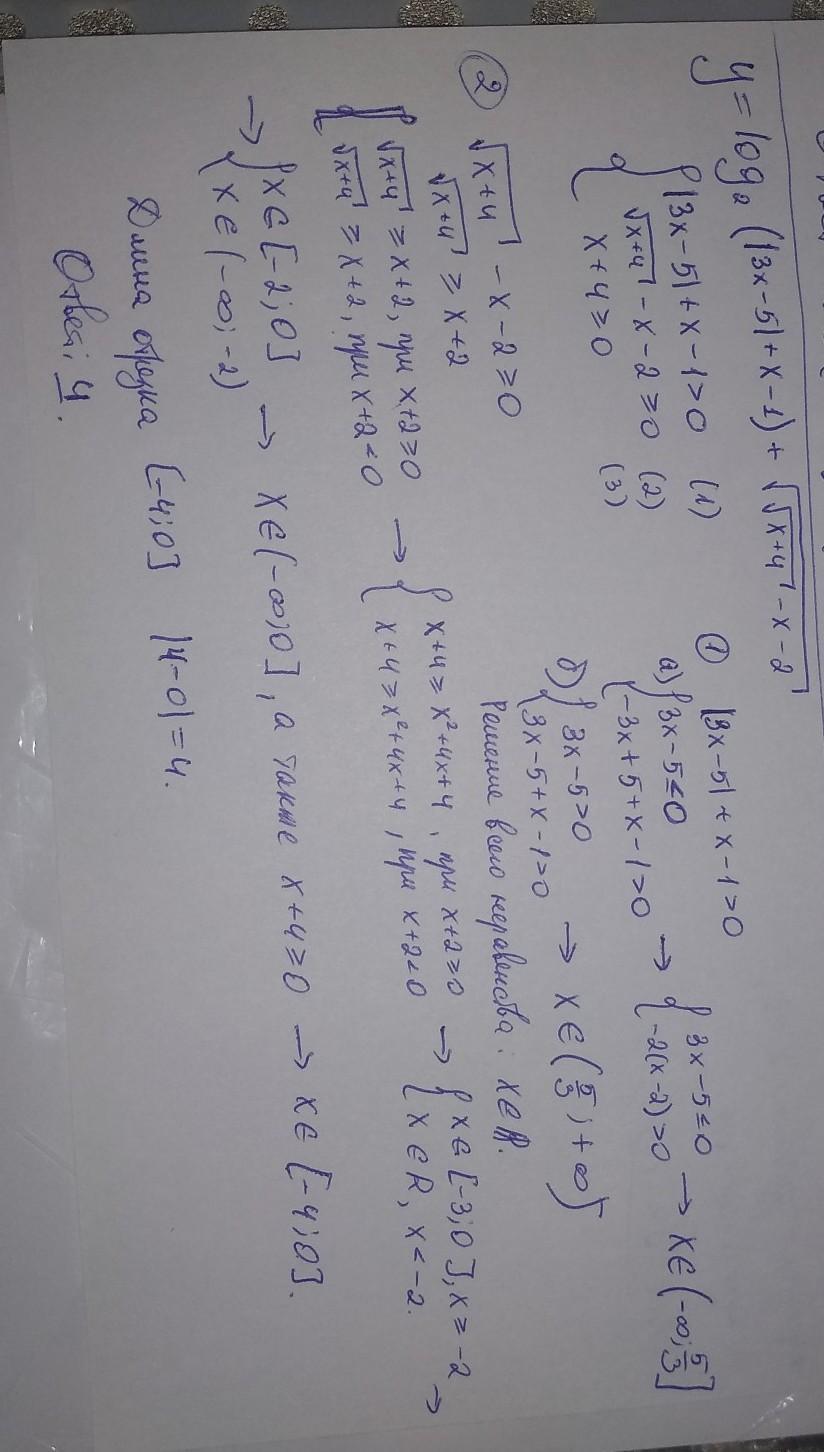 y = log₂ (|3x-5| + x - 1) + √(√(x+4) - x - 2)
{ |3x-5| + x - 1 > 0 (1)
√(x+4) - x - 2 ≥ 0 (2)
x + 4 ≥ 0 (3)
① |3x-5| + x - 1 > 0
а) { 3x-5 ≤ 0
-3x+5+x-1 > 0 → { 3x-5 ≤ 0
-2(x-2) > 0 → x ∈ (-∞; 5/3]
б) { 3x-5 > 0
3x-5+x-1 > 0 → x ∈ (5/3; +∞)
Решение всего неравенства: x ∈ R.
② √(x+4) - x - 2 ≥ 0
√(x+4) ≥ x+2
{ √(x+4) ≥ x+2, при x+2 ≥ 0
√(x+4) ≥ x+2, при x+2 < 0 → { x+4 ≥ x²+4x+4, при x+2 ≥ 0
x+4 ≥ x²+4x+4, при x+2 < 0 → { x ∈ [-3; 0], x ≥ -2
x ∈ R, x < -2. →
→ { x ∈ [-2; 0]
x ∈ (-∞; -2) → x ∈ (-∞; 0], а также x+4 ≥ 0 → x ∈ [-4; 0].
Длина отрезка [-4; 0] |4-0| = 4.
Ответ: 4.